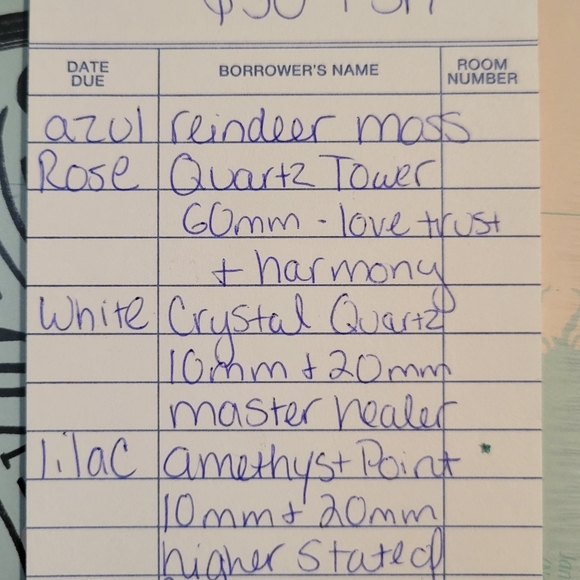 DATE DUE BORROWER'S NAME ROOM NUMBER
azul reindeer moss
Rose Quartz Tower
60mm - love trust
+ harmony
White Crystal Quartz
10mm + 20mm
master healer
lilac amethyst Point
10mm + 20mm
higher state of